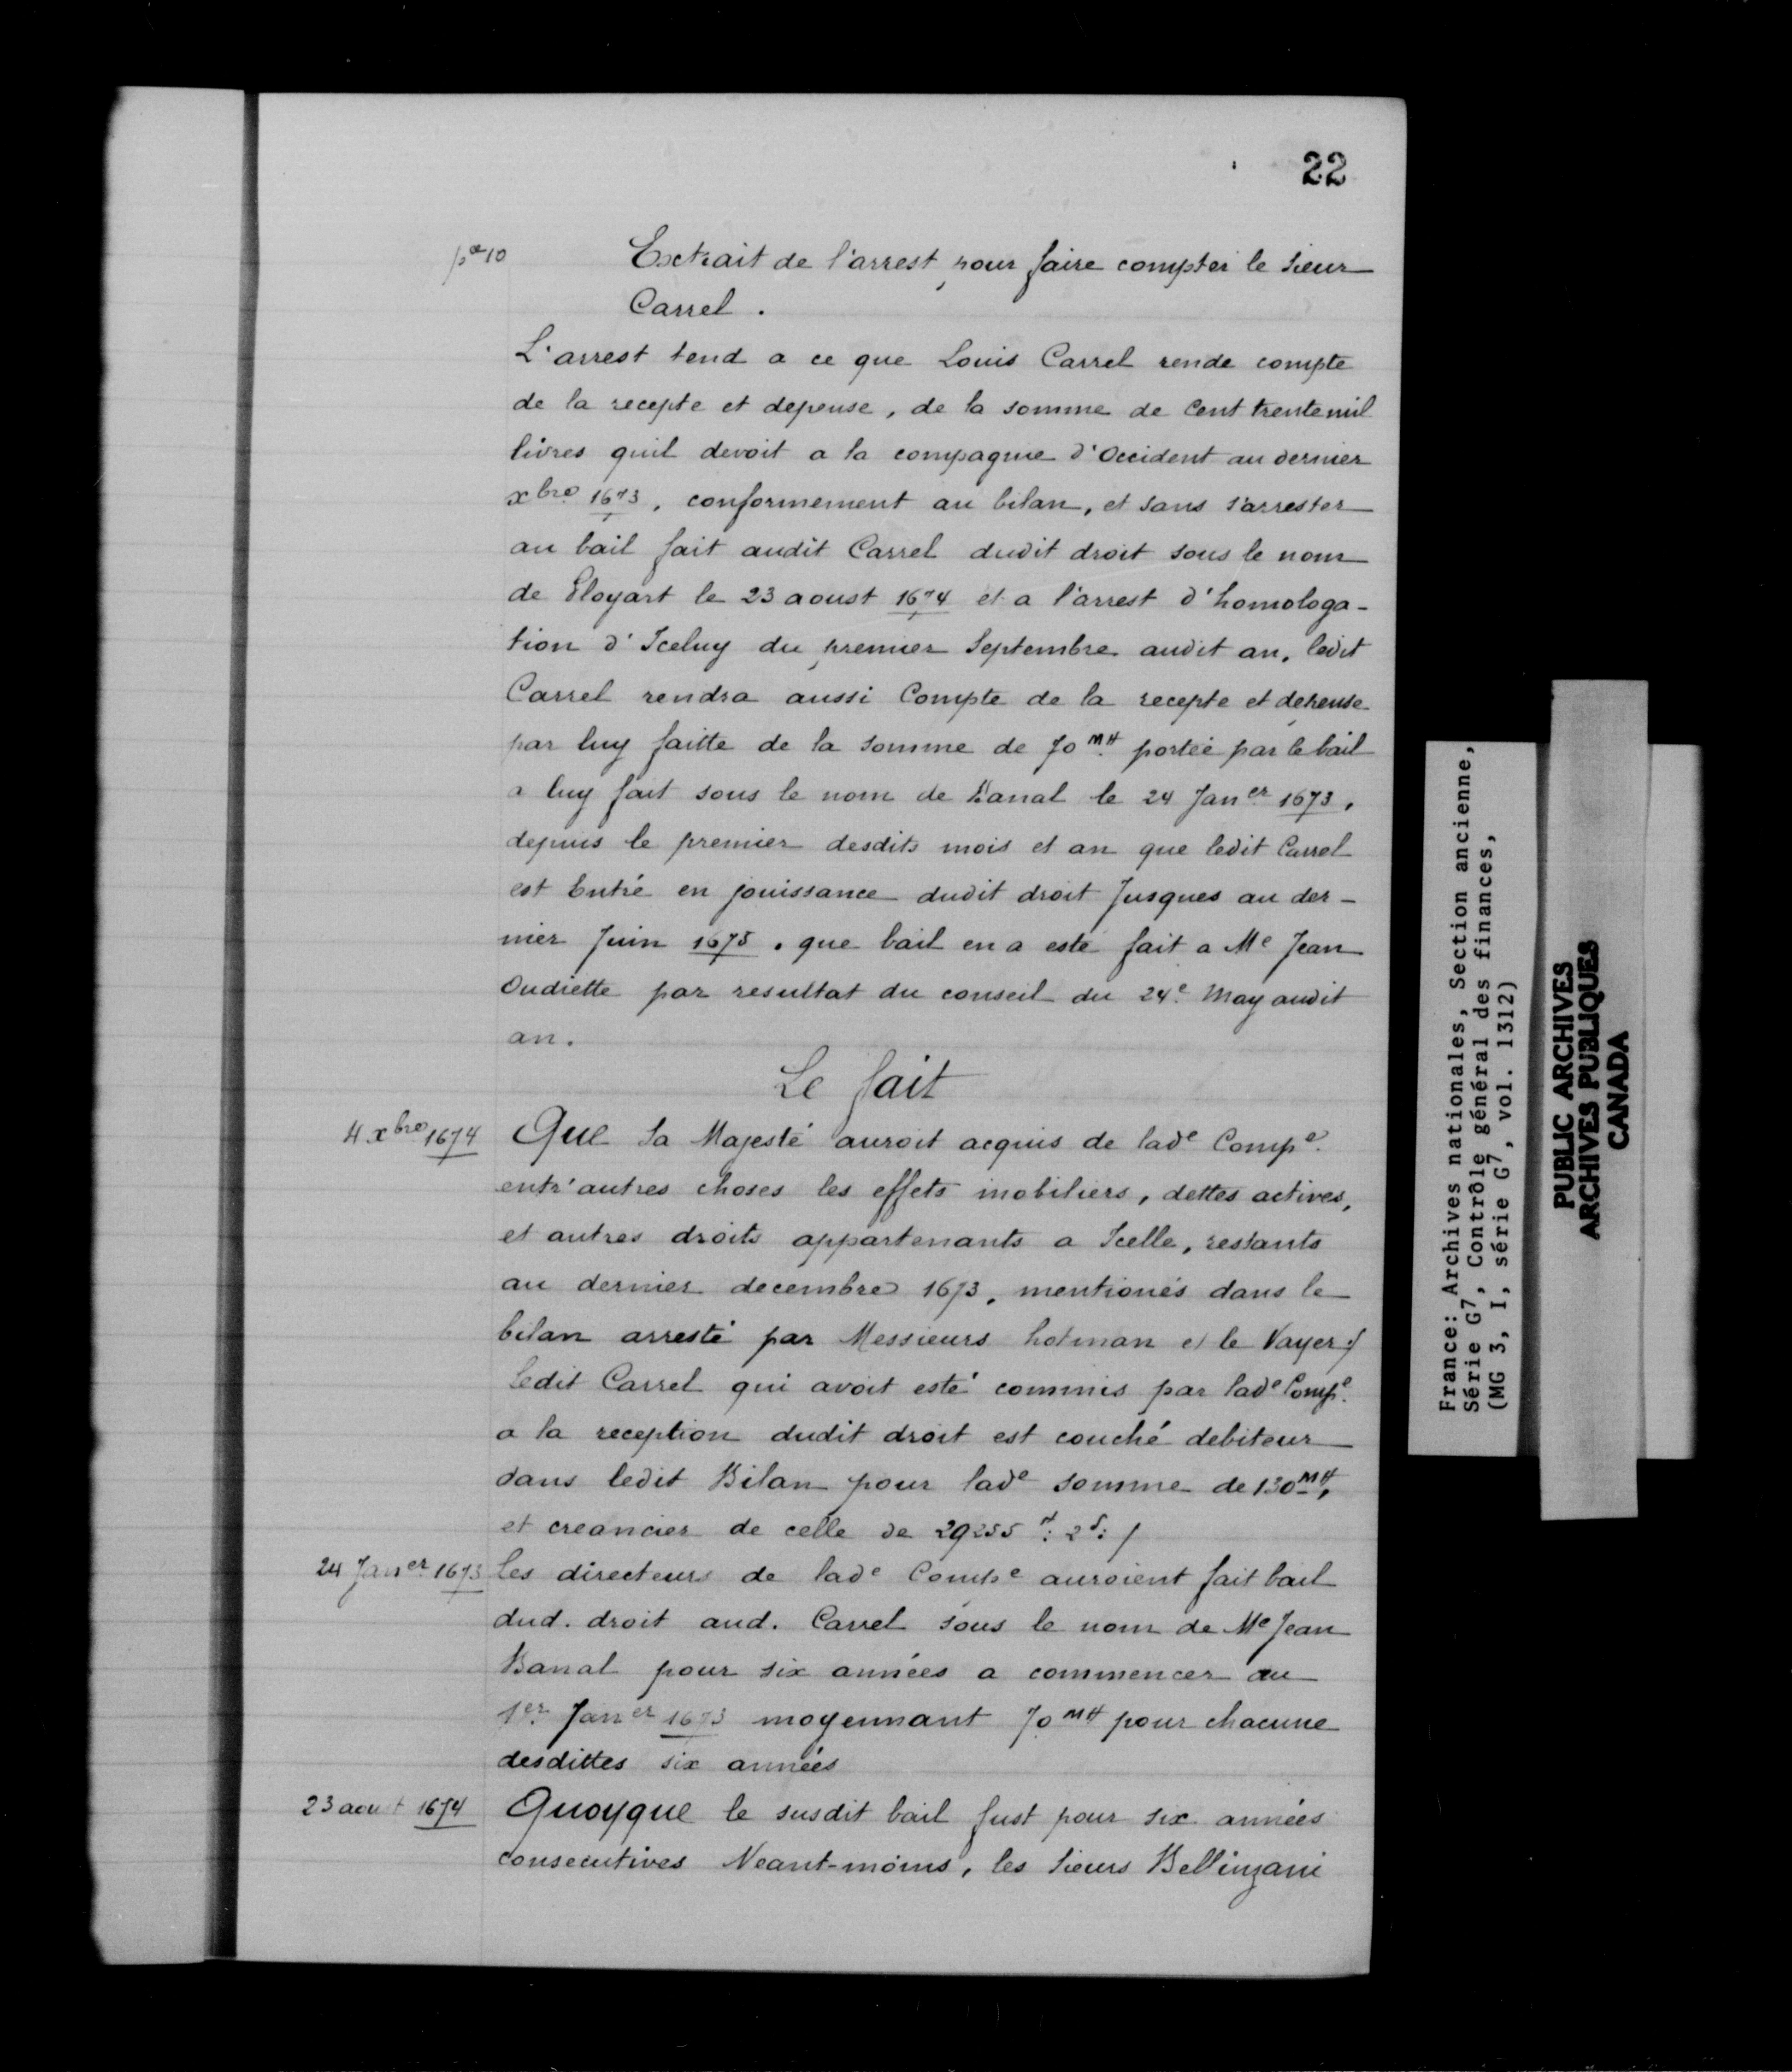 22
pce 10
Extrait de l'arrest pour faire compter le sieur
Carrel.
L'arrest tend a ce que Louis Carrel rende compte
de la recepte et depense, de la somme de Cent trente mil
livres quil devoit a la compagnie d'Occident au dernier
xbre 1673, conformement au bilan, et sans s'arrester
au bail fait audit Carrel dudit droit sous le nom
de Eloyart le 23 aoust 1674 et a l'arrest d'homologa-
tion d'Iceluy du premier Septembre audit an, ledit
Carrel rendra aussi Compte de la recepte et depense
par luy faitte de la somme de 70 M# portée par le bail
a luy fait sous le nom de Banal le 24 Janer 1673,
depuis le premier desdits mois et an que ledit Carrel
est Entré en jouissance dudit droit Jusques au der-
nier Juin 1675. que bail en a esté fait a Me Jean
Oudiette par resultat du conseil du 24e May audit
an.
Le fait
4 xbre 1674
Que Sa Majesté auroit acquis de lade Compe
entr'autres choses les effets mobiliers, dettes actives,
et autres droits appartenants a Icelle, restants
au dernier decembre 1673, mentionés dans le
bilan arresté par Messieurs hotman et le Vayer /
Ledit Carrel qui avoit esté commis par lade Compe
a la reception dudit droit est couché debiteur
dans ledit Bilan pour lade somme de 130 M#,
et creancier de celle de 29255 #: 2 s: /
24 Janer 1673
Les directeurs de lade Compe auroient fait bail
dud. droit aud. Carrel sous le nom de Me Jean
Banal pour six années a commencer au
1er Janer 1673 moyennant 70 M# pour chacune
desdittes six années
23 aoust 1674
Quoyque le susdit bail fust pour six années
consecutives Neant-moins, les sieurs Bellinzani
France: Archives nationales, Section ancienne,
Série G7, Contrôle général des finances,
(MG 3, I, série G7, vol. 1312)
PUBLIC ARCHIVES
ARCHIVES PUBLIQUES
CANADA